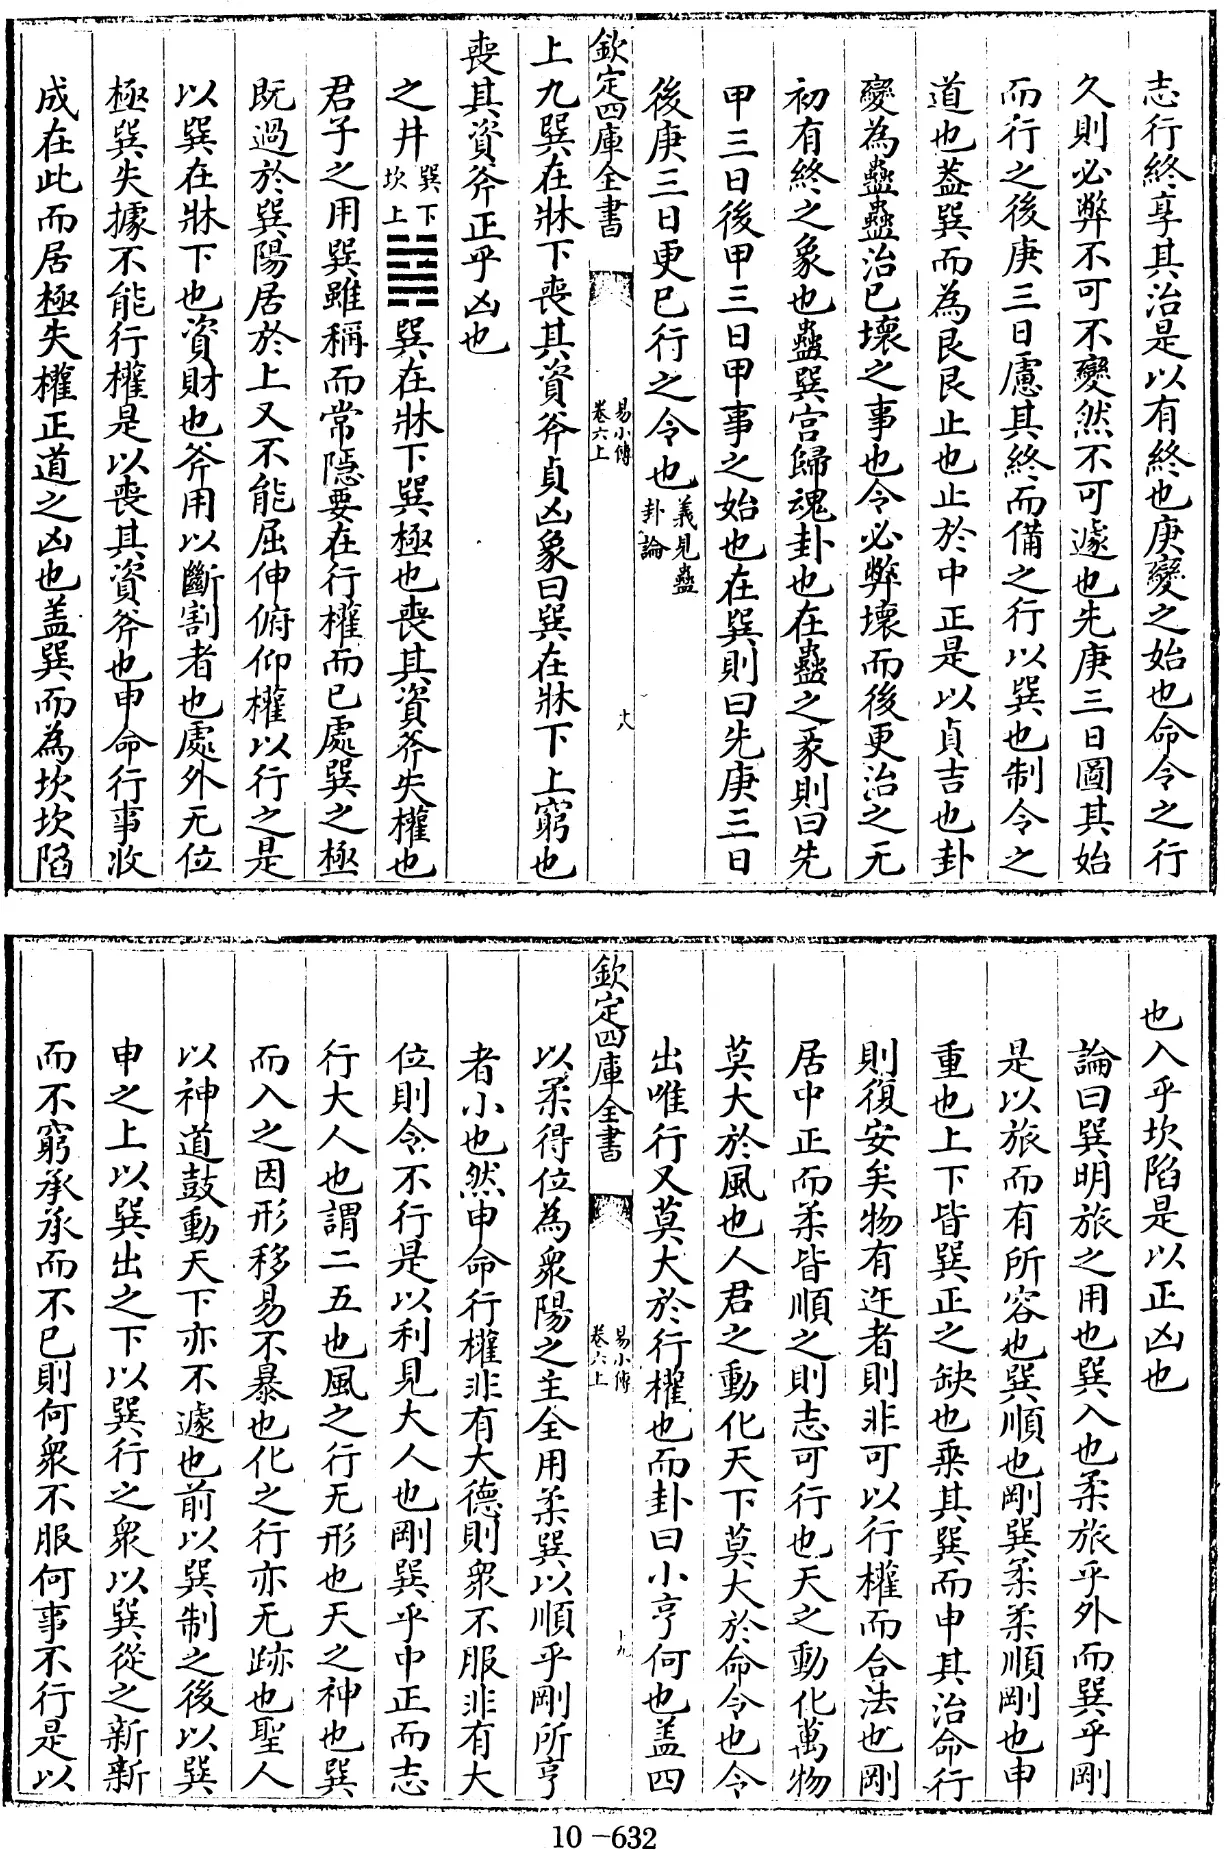 志行終享其治是以有終也庚變之始也命令之行
久則必弊不可不變然不可遽也先庚三日圖其始
而行之後庚三日慮其終而備之行以巽也制令之
道也葢巽而為艮艮止也止於中正是以貞吉也卦
變為蠱蠱治已壞之事也令必弊壞而後更治之无
初有終之象也蠱巽宫歸魂卦也在蠱之彖則曰先
甲三日後甲三日甲事之始也在巽則曰先庚三日
後庚三日更已行之令也義見蠱
卦論
欽定四庫全書
易小傳
卷六上
十八
上九巽在牀下喪其資斧貞凶象曰巽在牀下上窮也
喪其資斧正乎凶也
之井巽下
坎上巽在牀下巽極也喪其資斧失權也
君子之用巽雖稱而常隱要在行權而已處巽之極
既過於巽陽居於上又不能屈伸俯仰權以行之是
以巽在牀下也資財也斧用以斷割者也處外无位
極巽失據不能行權是以喪其資斧也申命行事收
成在此而居極失權正道之凶也盖巽而為坎坎陷
也入乎坎陷是以正凶也
論曰巽明旅之用也巽入也柔旅乎外而巽乎剛
是以旅而有所容也巽順也剛巽柔柔順剛也申
重也上下皆巽正之缺也乘其巽而申其治命行
則復安矣物有迕者則非可以行權而合法也剛
居中正而柔皆順之則志可行也天之動化萬物
莫大於風也人君之動化天下莫大於命令也令
出唯行又莫大於行權也而卦曰小亨何也盖四
欽定四庫全書
易小傳
卷六上
十九
以柔得位為衆陽之主全用柔巽以順乎剛所亨
者小也然申命行權非有大德則衆不服非有大
位則令不行是以利見大人也剛巽乎中正而志
行大人也謂二五也風之行无形也天之神也巽
而入之因形移易不暴也化之行亦无跡也聖人
以神道鼓動天下亦不遽也前以巽制之後以巽
申之上以巽出之下以巽行之衆以巽從之新新
而不窮承承而不已則何衆不服何事不行是以
10-632